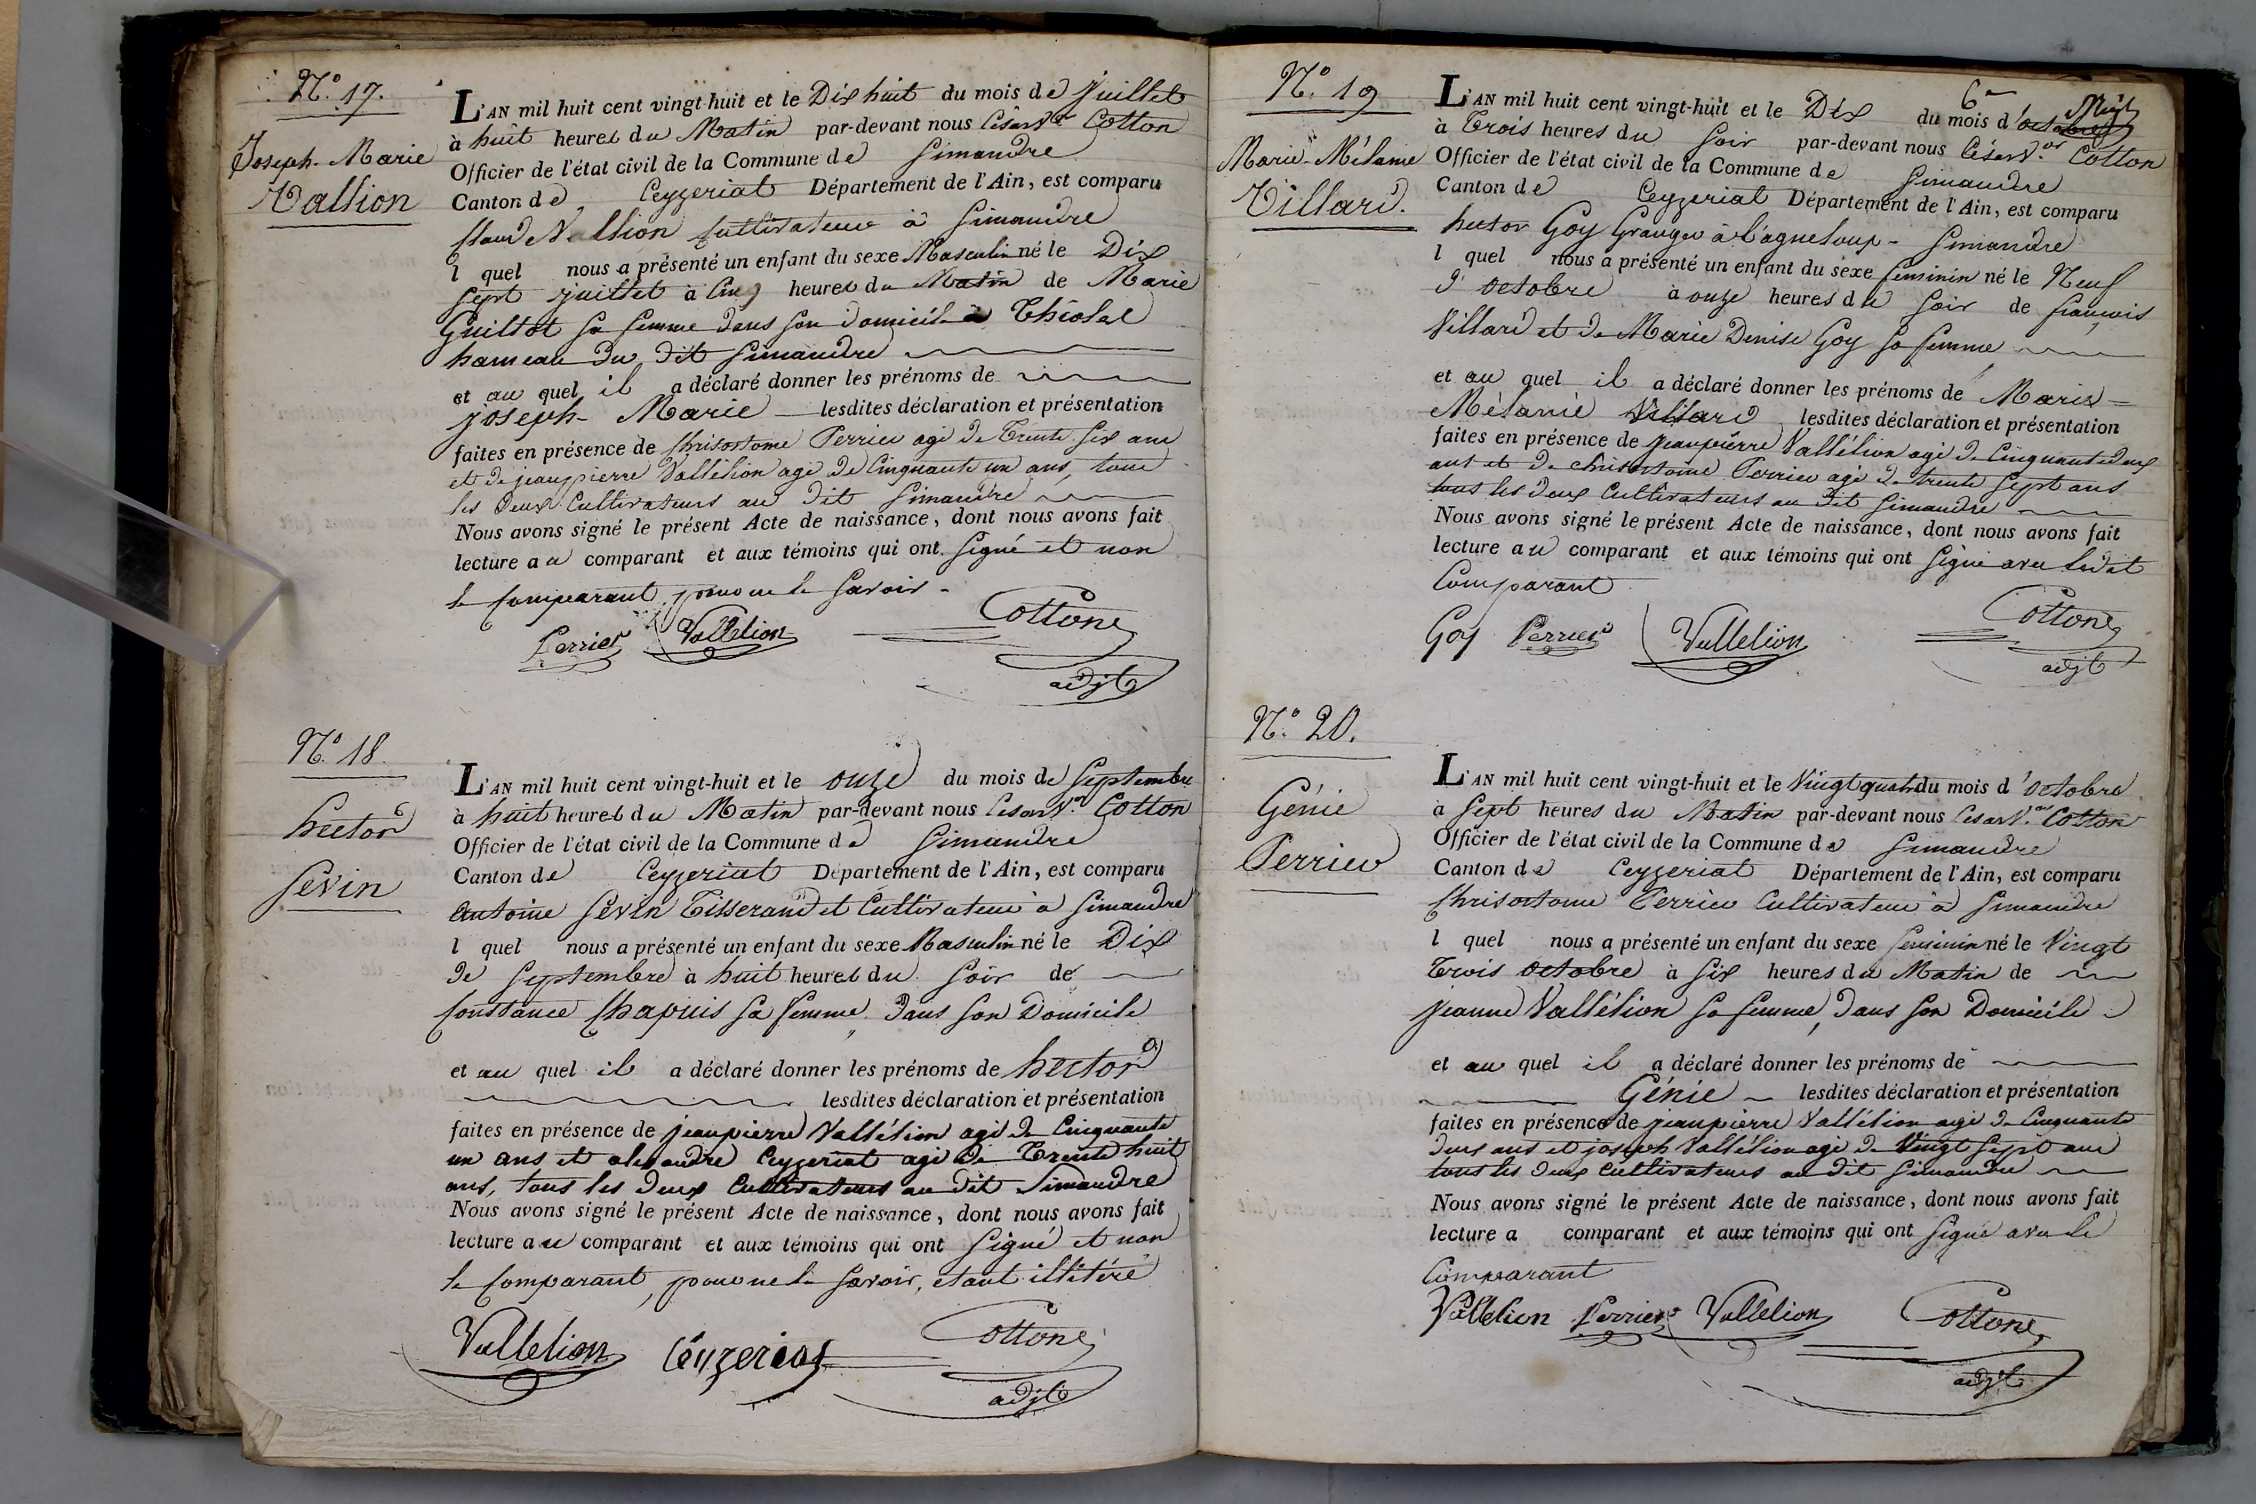 N.° 17.
Joseph-Marie
Vallion
L'AN mil huit cent vingt-huit et le Dix huit du mois de juillet
à huit heures du Matin par-devant nous César V.or Cotton
Officier de l'état civil de la Commune de Simandre
Canton de Ceyzeriat Département de l'Ain, est comparu
Claude Vallion Cultivateur à Simandre
l quel nous a présenté un enfant du sexe Masculin né le Dix
Sept juillet à Cinq heures du Matin de Marie
Guillot sa femme dans son domicile à
hameau du dit Simandre
et au quel il a déclaré donner les prénoms de
joseph-Marie lesdites déclaration et présentation
faites en présence de Chrisostome Perrier agé de Trente Six ans
et de jeanpierre Vallélion agé de Cinquante un ans, tous
les deux Cultivateurs au dit Simandre
Nous avons signé le présent Acte de naissance, dont nous avons fait
lecture au comparant et aux témoins qui ont Signé et non
le Comparant pour ne le Savoir -
Perrier Vallelion Cotton
adjt
N.° 18.
hector
Sevin
L'AN mil huit cent vingt-huit et le onze du mois de Septembre
à huit heures du Matin par-devant nous César V.or Cotton
Officier de l'état civil de la Commune de Simandre
Canton de Ceyzeriat Département de l'Ain, est comparu
Antoine Sevin Tisserand et Cultivateur à Simandre
l quel nous a présenté un enfant du sexe Masculin né le Dix
de Septembre à huit heures du Soir de
Constance Chapuis Sa femme, dans Son Domicile
et au quel il a déclaré donner les prénoms de hector
lesdites déclaration et présentation
faites en présence de jeanpierre Vallélion agé de Cinquante
un ans et alexandre Ceyzeriat agé de Trente huit
ans, tous les deux Cultivateurs au dit Simandre
Nous avons signé le présent Acte de naissance, dont nous avons fait
lecture au comparant et aux témoins qui ont Signé et non
le Comparant, pour ne le Savoir, etant illitéré
Vallelion Céyzeriat Cotton
adjt
N.° 19
Marie-Mélanie
Villard.
L'AN mil huit cent vingt-huit et le Dix du mois d'octobre
à Trois heures du Soir par-devant nous César V.or Cotton
Officier de l'état civil de la Commune de Simandre
Canton de Ceyzeriat Département de l'Ain, est comparu
hector Goy Granger à Simandre
l quel nous a présenté un enfant du sexe feminin né le Neuf
d'octobre à onze heures du Soir de françois
Villard et de Marie Denise Goy Sa femme
et au quel il a déclaré donner les prénoms de Marie=
Mélanie Villard lesdites déclaration et présentation
faites en présence de jeanpierre Vallélion agé de Cinquante deux
ans et de chrisostome Perrier agé de trente Sept ans
tous les deux Cultivateurs au dit Simandre
Nous avons signé le présent Acte de naissance, dont nous avons fait
lecture au comparant et aux témoins qui ont Signé avec ledit
Comparant
Goy Perrier Vallelion Cotton
adjt
N.° 20.
Génie
Perrier
L'AN mil huit cent vingt-huit et le Vingt quatre du mois d'octobre
à Sept heures du Matin par-devant nous César V.or Cotton
Officier de l'état civil de la Commune de Simandre
Canton de Ceyzeriat Département de l'Ain, est comparu
Chrisostome Perrier Cultivateur à Simandre
l quel nous a présenté un enfant du sexe feminin né le Vingt
Trois octobre à Six heures du Matin de
jeanne Vallélion Sa femme, dans Son Domicile
et au quel il a déclaré donner les prénoms de
Génie lesdites déclaration et présentation
faites en présence de jeanpierre Vallélion agé de Cinquante
deux ans et joseph Vallélion agé de Vingt Sept ans
tous les deux Cultivateurs au dit Simandre
Nous avons signé le présent Acte de naissance, dont nous avons fait
lecture a comparant et aux témoins qui ont Signé avec le
Comparant
Vallelion Perrier Vallelion Cotton
adjt